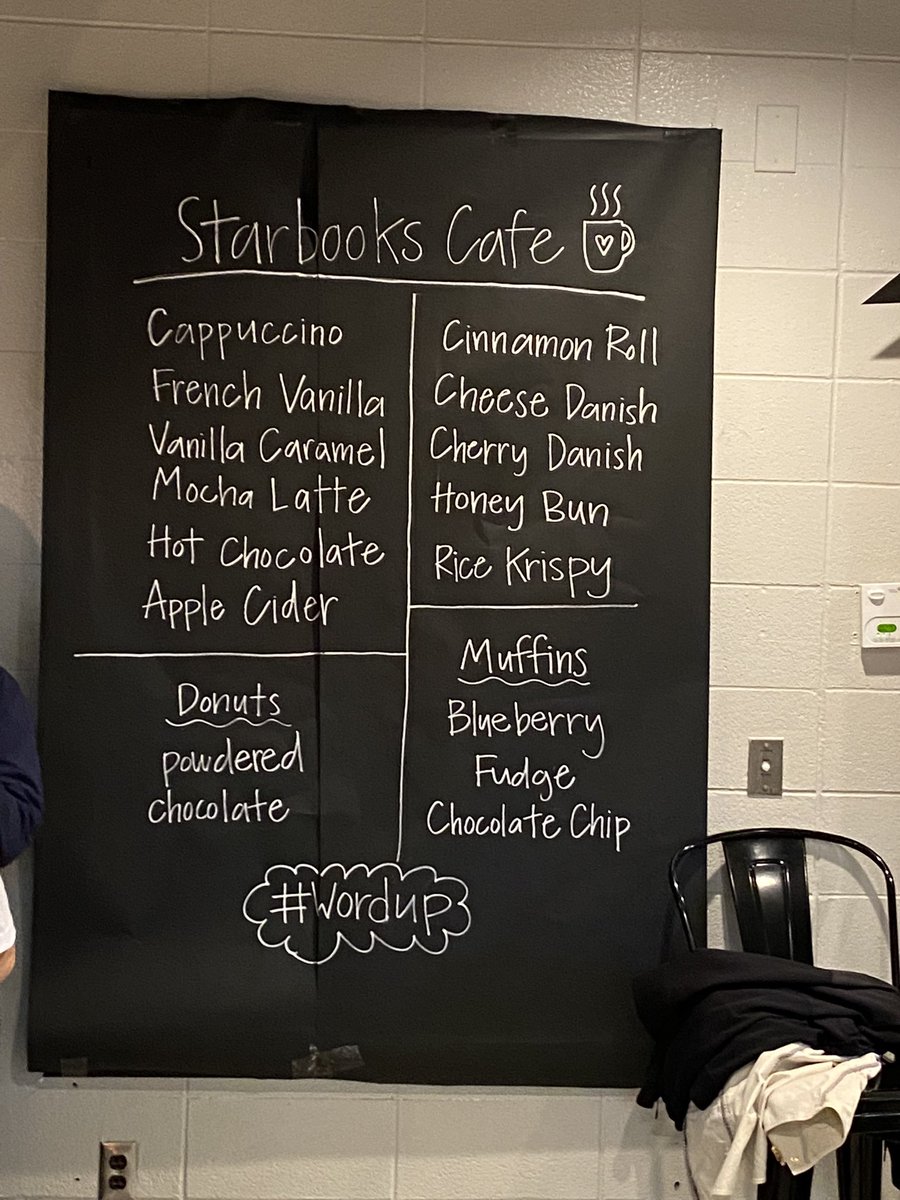 Starbooks Cafe
Cappuccino
French Vanilla
Vanilla Caramel
Mocha Latte
Hot Chocolate
Apple Cider
Cinnamon Roll
Cheese Danish
Cherry Danish
Honey Bun
Rice Krispy
Donuts
powdered
chocolate
Muffins
Blueberry
Fudge
Chocolate Chip
#Wordup